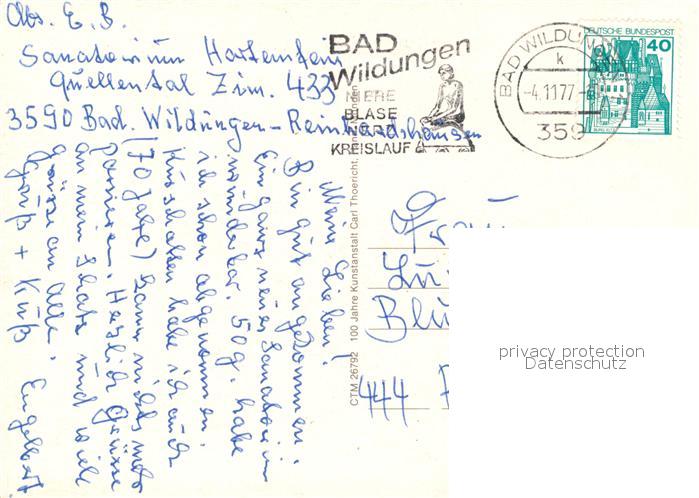 Abs. E. B.
Sanatorium Hartenstein
Quellental Zim. 433
3590 Bad. Wildungen-Reinhardshausen
BAD
Wildungen
NIERE
BLASE
HERZ
KREISLAUF
BAD WILDUN
k
-4.11.77-
359
DEUTSCHE BUNDESPOST
40
Meine Lieben!
Bin gut angekommen.
Ein ganz neues Sanatorium
wunderbar. 50 g. habe
ich schon abgenommen.
Kurschatten habe ich auch
(70 Jahre) kann nichts mehr
passieren. Herzlich Grüsse
an mein Schatz und viele
Grüsse an Alle.
Gruß + Kuß Engelbert
CTM 26792 100 Jahre Kunstanstalt Carl Thoericht, Münden
Frau
Lu
Blu
444
privacy protection
Datenschutz